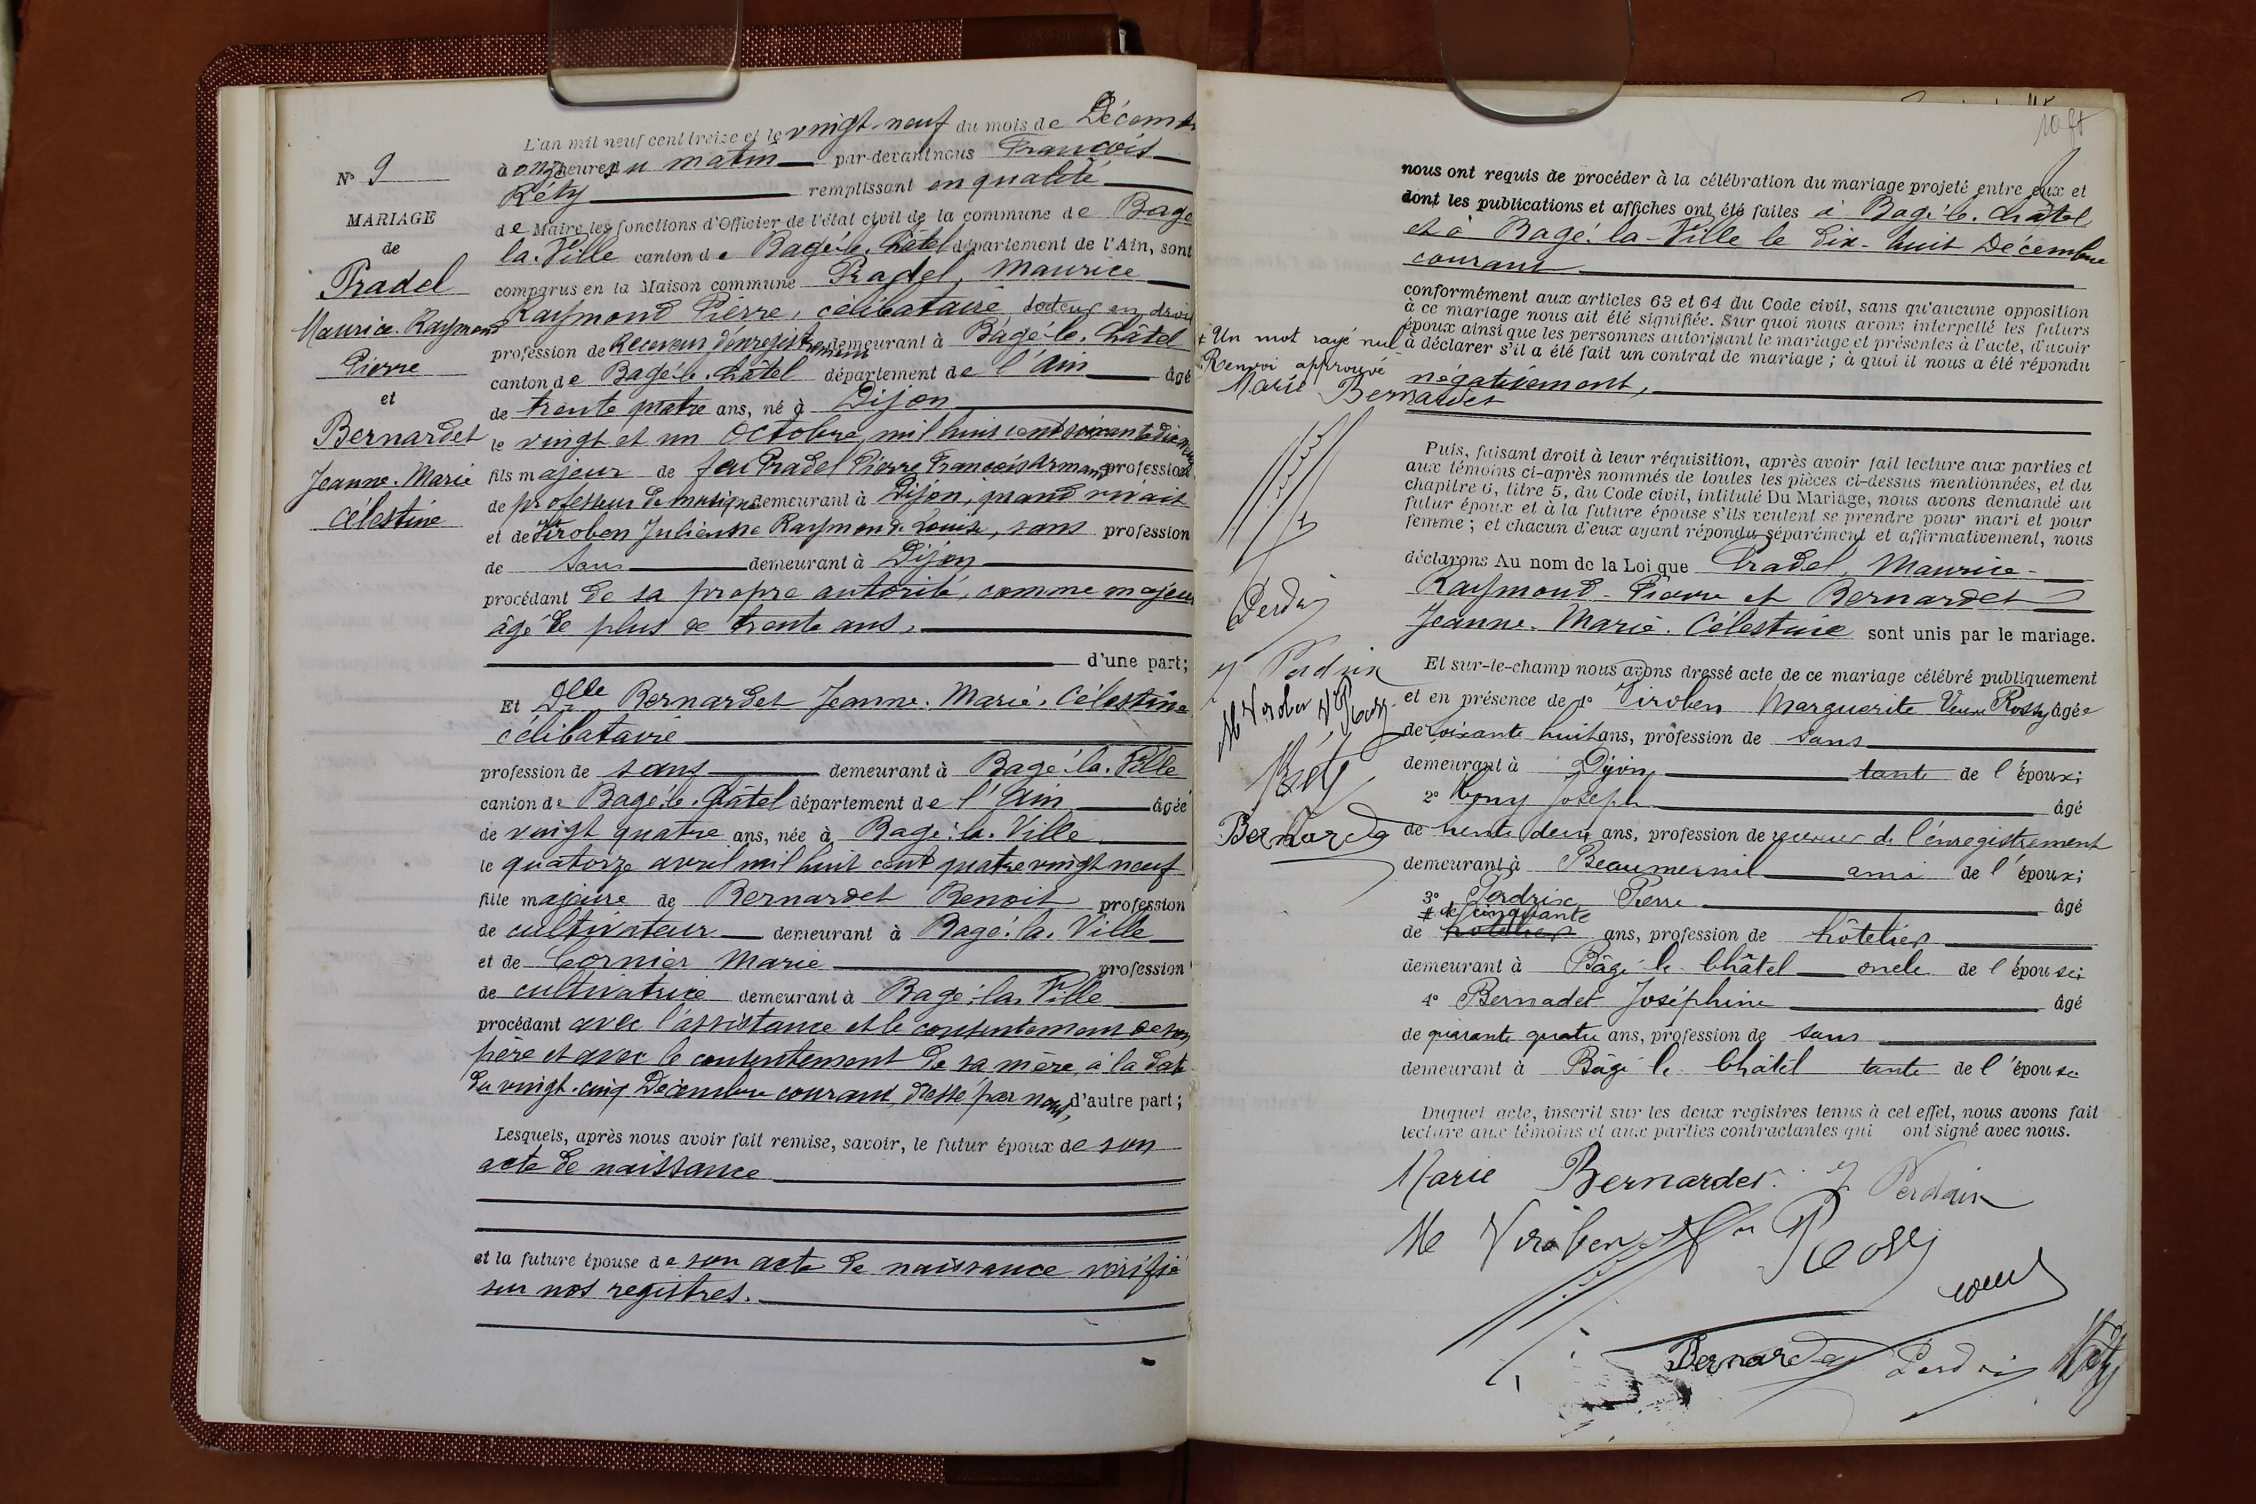 N° 9
MARIAGE
de
Pradel
Maurice Raymond
Pierre
et
Bernardet
Jeanne-Marie
Célestine
L'an mil neuf cent treize et le vingt-neuf du mois de Décemb
à onze heures du matin par-devant nous François
Réty remplissant en qualité
de Maire les fonctions d'Officier de l'état civil de la commune de Bagé
la-Ville canton de Bagé-le-Châtel département de l'Ain, sont
comparus en la Maison commune Pradel, Maurice
Raymond Pierre, célibataire, docteur en droit
profession de Receveur d'enregistrement demeurant à Bâgé-le-Châtel
canton de Bagé-le-Châtel département de l'Ain âgé
de trente quatre ans, né à Dijon
le vingt et un Octobre mil huit cent soixante dix neuf
fils majeur de feu Pradel Pierre François Armand profession
de professeur de musique demeurant à Dijon, quand vivait
et de Viroben Julienne Raymonde Louise, sans profession
de sans demeurant à Dijon
procédant de sa propre autorité, comme majeur
âgé de plus de trente ans,
d'une part;
Et Dlle Bernardet Jeanne-Marie-Célestine
célibataire
profession de sans demeurant à Bagé-la-Ville
canton de Bagé-le-Châtel département de l'Ain âgée
de vingt quatre ans, née à Bagé-la-Ville
le quatorze avril mil huit cent quatre vingt neuf
fille majeure de Bernardet Benoit profession
de cultivateur demeurant à Bagé-la-Ville
et de Cornier Marie profession
de cultivatrice demeurant à Bagé-la-Ville
procédant avec l'assistance et le consentement de son
père et avec le consentement de sa mère, à la date
du vingt-cinq Décembre courant, dressé par nous, d'autre part;
Lesquels, après nous avoir fait remise, savoir, le futur époux de son
acte de naissance
et la future épouse de son acte de naissance vérifié
sur nos registres.
nous ont requis de procéder à la célébration du mariage projeté entre eux et
dont les publications et affiches ont été faites à Bagé-le-Châtel
et à Bagé-la-Ville le dix-huit Décembre
courant
conformément aux articles 63 et 64 du Code civil, sans qu'aucune opposition
à ce mariage nous ait été signifiée. Sur quoi nous avons interpellé les futurs
époux ainsi que les personnes autorisant le mariage et présentes à l'acte, d'avoir
à déclarer s'il a été fait un contrat de mariage; à quoi il nous a été répondu
négativement,
Un mot rayé nul
Renvoi approuvé
Marie Bernardet
Perdrix
Y Perdrix
M Viroben Ve Rossy
Réty
Bernardet
Puis, faisant droit à leur réquisition, après avoir fait lecture aux parties et
aux témoins ci-après nommés de toutes les pièces ci-dessus mentionnées, et du
chapitre 6, titre 5, du Code civil, intitulé Du Mariage, nous avons demandé au
futur époux et à la future épouse s'ils veulent se prendre pour mari et pour
femme; et chacun d'eux ayant répondu séparément et affirmativement, nous
déclarons Au nom de la Loi que Pradel Maurice-
Raymond-Pierre et Bernardet
Jeanne-Marie-Célestine sont unis par le mariage.
Et sur-le-champ nous avons dressé acte de ce mariage célébré publiquement
et en présence de 1° Viroben Marguerite Veuve Rossy âgée
de soixante huit ans, profession de sans
demeurant à Dijon tante de l'époux;
2° Joseph âgé
de trente deux ans, profession de receveur de l'enregistrement
demeurant à Beaumesnil ami de l'époux;
3° Perdrix Pierre âgé
# de cinquante
de hôtelier ans, profession de hôtelier
demeurant à Bâgé le Châtel oncle de l'épouse;
4° Bernadet Joséphine âgé
de quarante quatre ans, profession de sans
demeurant à Bâgé le Châtel tante de l'épouse
Duquel acte, inscrit sur les deux registres tenus à cet effet, nous avons fait
lecture aux témoins et aux parties contractantes qui ont signé avec nous.
Marie Bernardet Y Perdrix
Me Viroben Ve Rossy
Bernardet Perdrix Réty